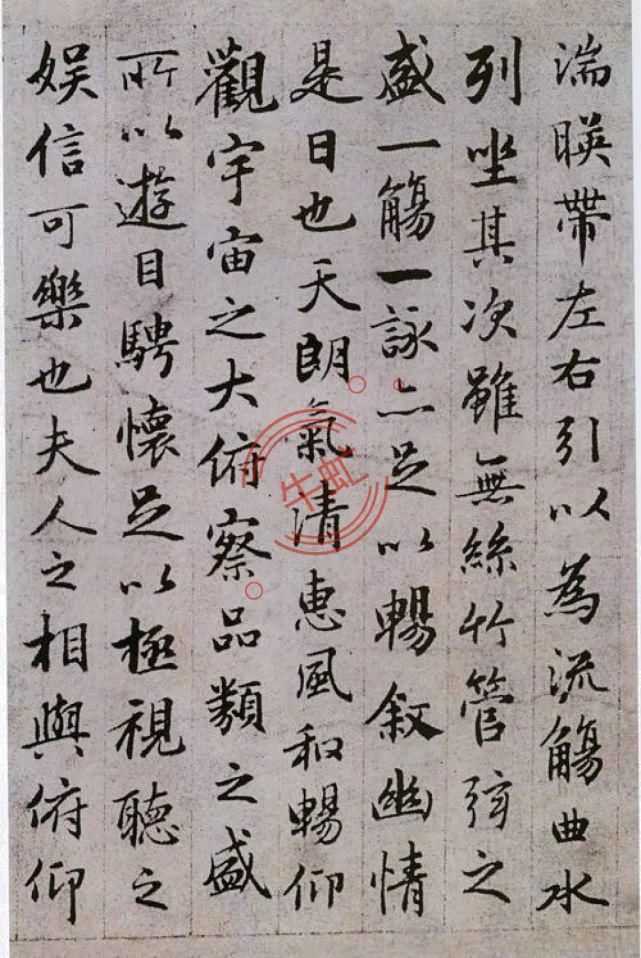 湍暎帶左右引以為流觴曲水
列坐其次雖無絲竹管弦之
盛一觴一詠亦足以暢敘幽情
是日也天朗氣清惠風和暢仰
觀宇宙之大俯察品類之盛
所以遊目騁懷足以極視聽之
娛信可樂也夫人之相與俯仰
牛虹